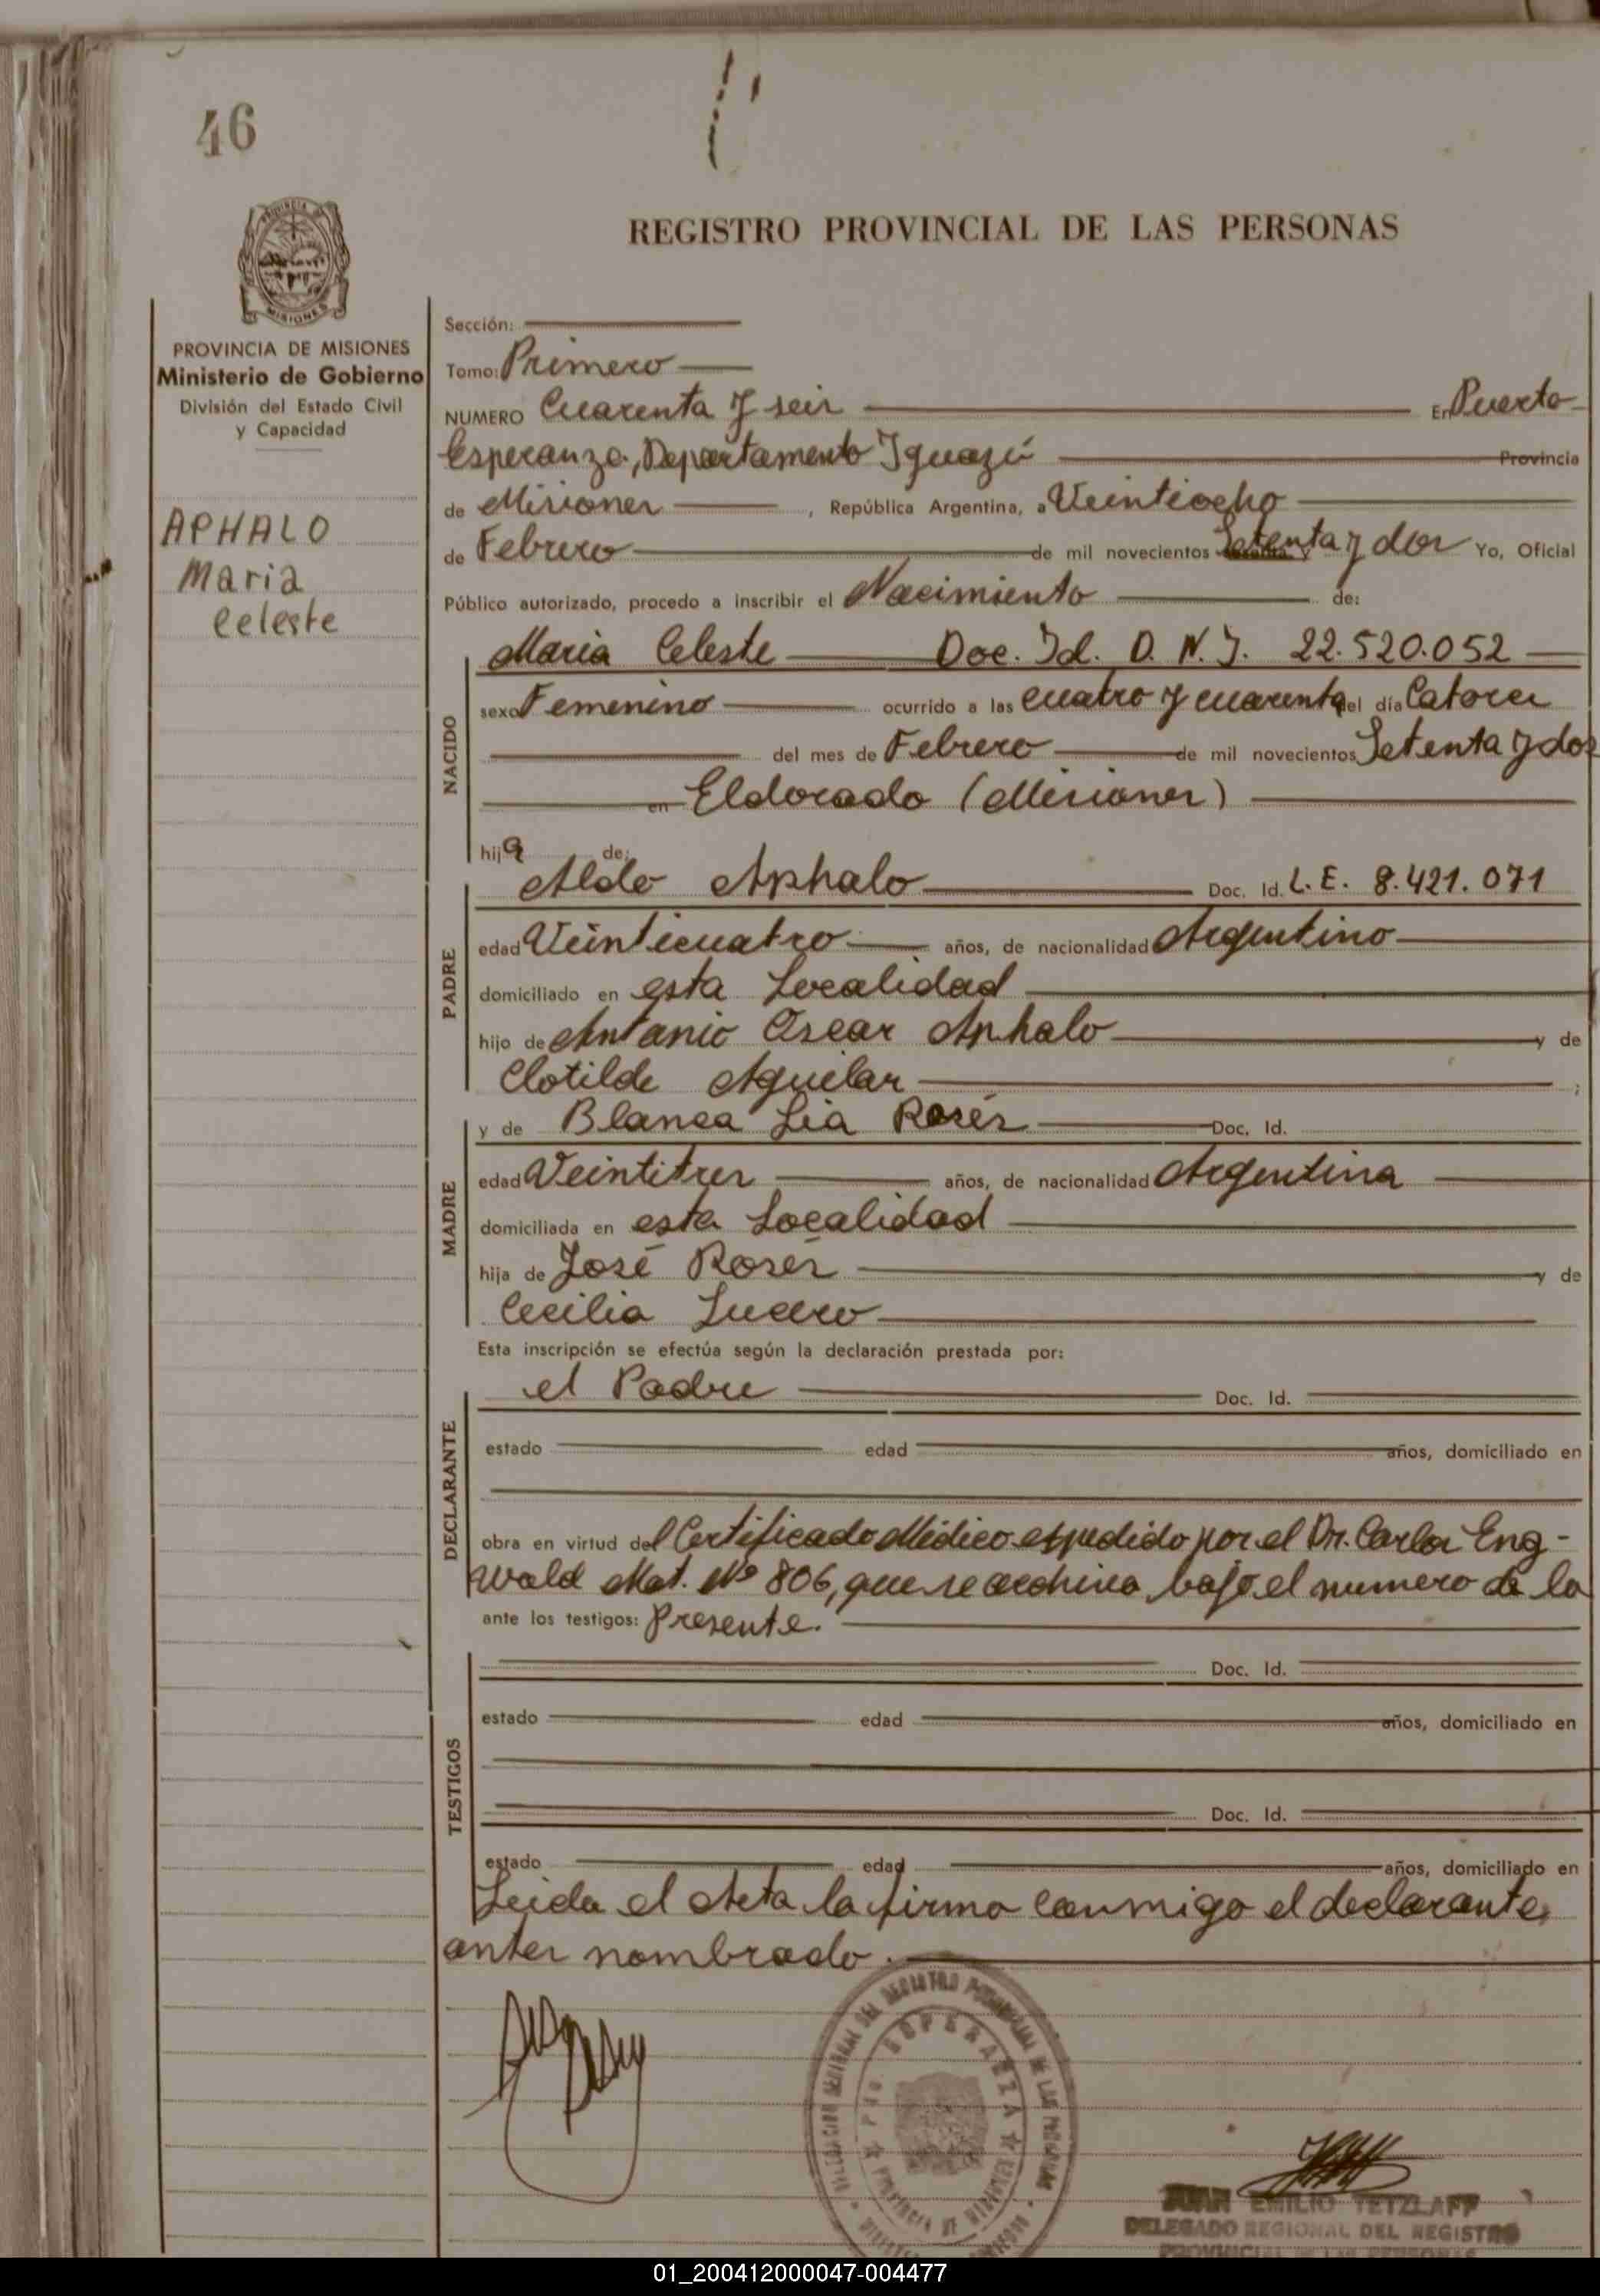 46
REGISTRO PROVINCIAL DE LAS PERSONAS
MISIONES
PROVINCIA DE MISIONES
Ministerio de Gobierno
División del Estado Civil
y Capacidad
APHALO
Maria
Celeste
Sección:
Tomo: Primero
NUMERO Cuarenta y seis En Puerto
Esperanza, Departamento Iguazú Provincia
de Misiones, República Argentina, a Veintiocho
de Febrero de mil novecientos Setenta y dos Yo, Oficial
Público autorizado, procedo a inscribir el Nacimiento de:
NACIDO
Maria Celeste Doc. Id. D. N. I. 22.520.052
sexo Femenino ocurrido a las cuatro y cuarenta del día Catorce
del mes de Febrero de mil novecientos Setenta y dos
en Eldorado (Misiones)
hija de:
PADRE
Aldo Aphalo Doc. Id. L. E. 8.421.071
edad Veinticuatro años, de nacionalidad Argentino
domiciliado en esta Localidad
hijo de Antonio Oscar Aphalo y de
Clotilde Aguilar;
MADRE
y de Blanca Lia Rosés Doc. Id.
edad Veintitres años, de nacionalidad Argentina
domiciliada en esta Localidad
hija de José Rosés y de
Cecilia Lucero
Esta inscripción se efectúa según la declaración prestada por:
DECLARANTE
el Padre Doc. Id.
estado edad años, domiciliado en
obra en virtud del Certificado Médico espedido por el Dr. Carlos Eng-
wald Mat. Nº 806, que se archiva bajo el numero de la
ante los testigos: Presente.
TESTIGOS
Doc. Id.
estado edad años, domiciliado en
Doc. Id.
estado edad años, domiciliado en
Leida el Acta la firma conmigo el declarante
antes nombrado.
JUAN EMILIO TETZLAFF
DELEGADO REGIONAL DEL REGISTRO
PROVINCIAL DE LAS PERSONAS
01_200412000047-004477